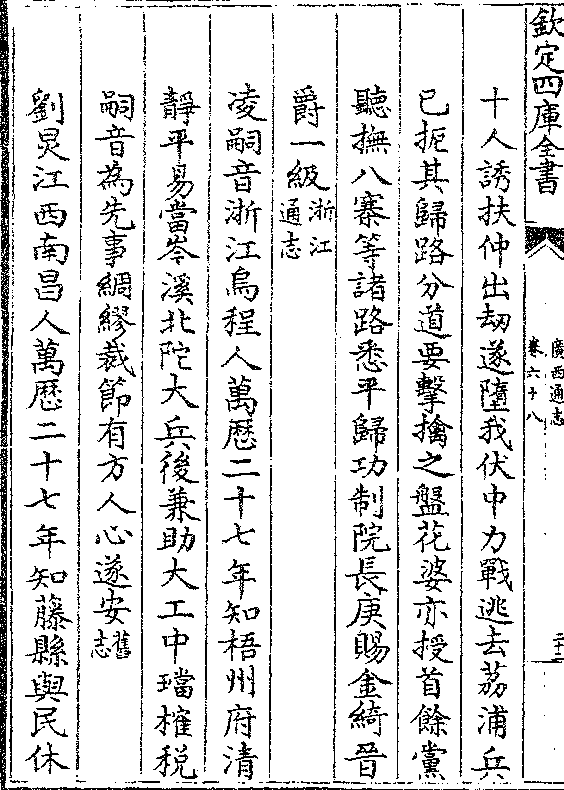 欽定四庫全書
廣西通志
卷六十八
十人誘扶仲出刼遂墮我伏中力戰逃去荔浦兵
已扼其歸路分道要擊擒之盤花婆亦授首餘黨
聽撫八寨等諸路悉平歸功制院長庚賜金綺晉
爵一級浙江通志
凌嗣音浙江烏程人萬厯二十七年知梧州府清
靜平易當岑溪北陀大兵後兼助大工中璫榷稅
嗣音為先事綢繆裁節有方人心遂安舊志
劉炅江西南昌人萬厯二十七年知藤縣與民休